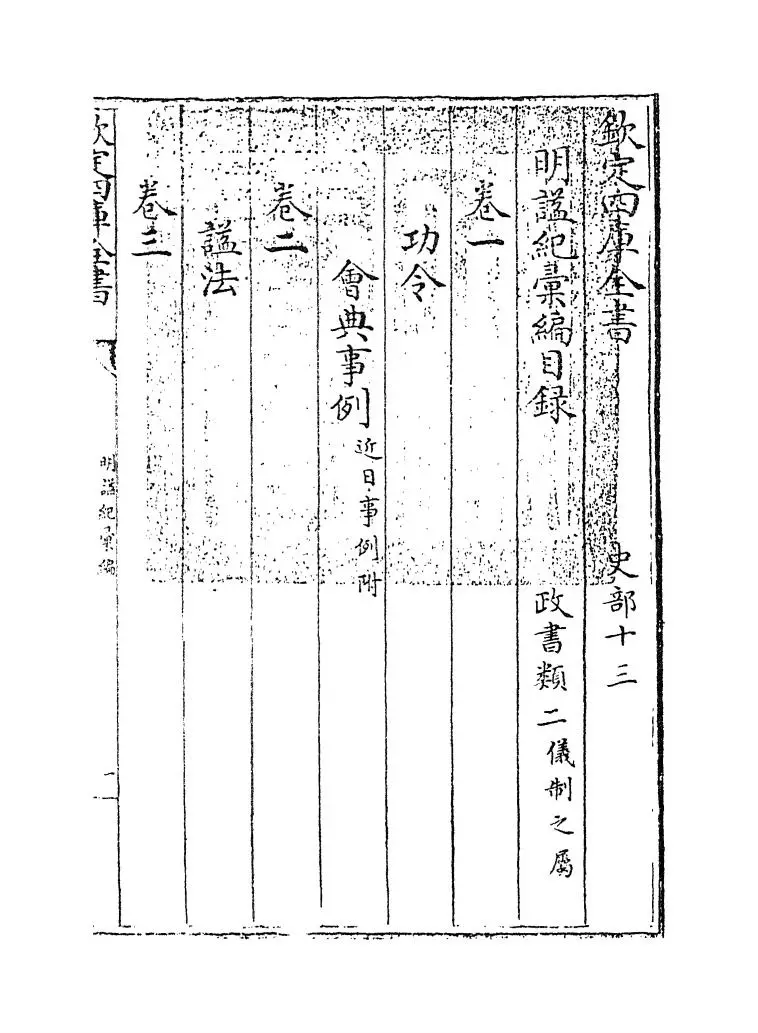 欽定四庫全書　史部十三
明諡紀彙編目録　政書類二儀制之屬
卷一
功令
會典事例近日事例附
卷二
諡法
卷三
欽定四庫全書　明諡紀彙編　一